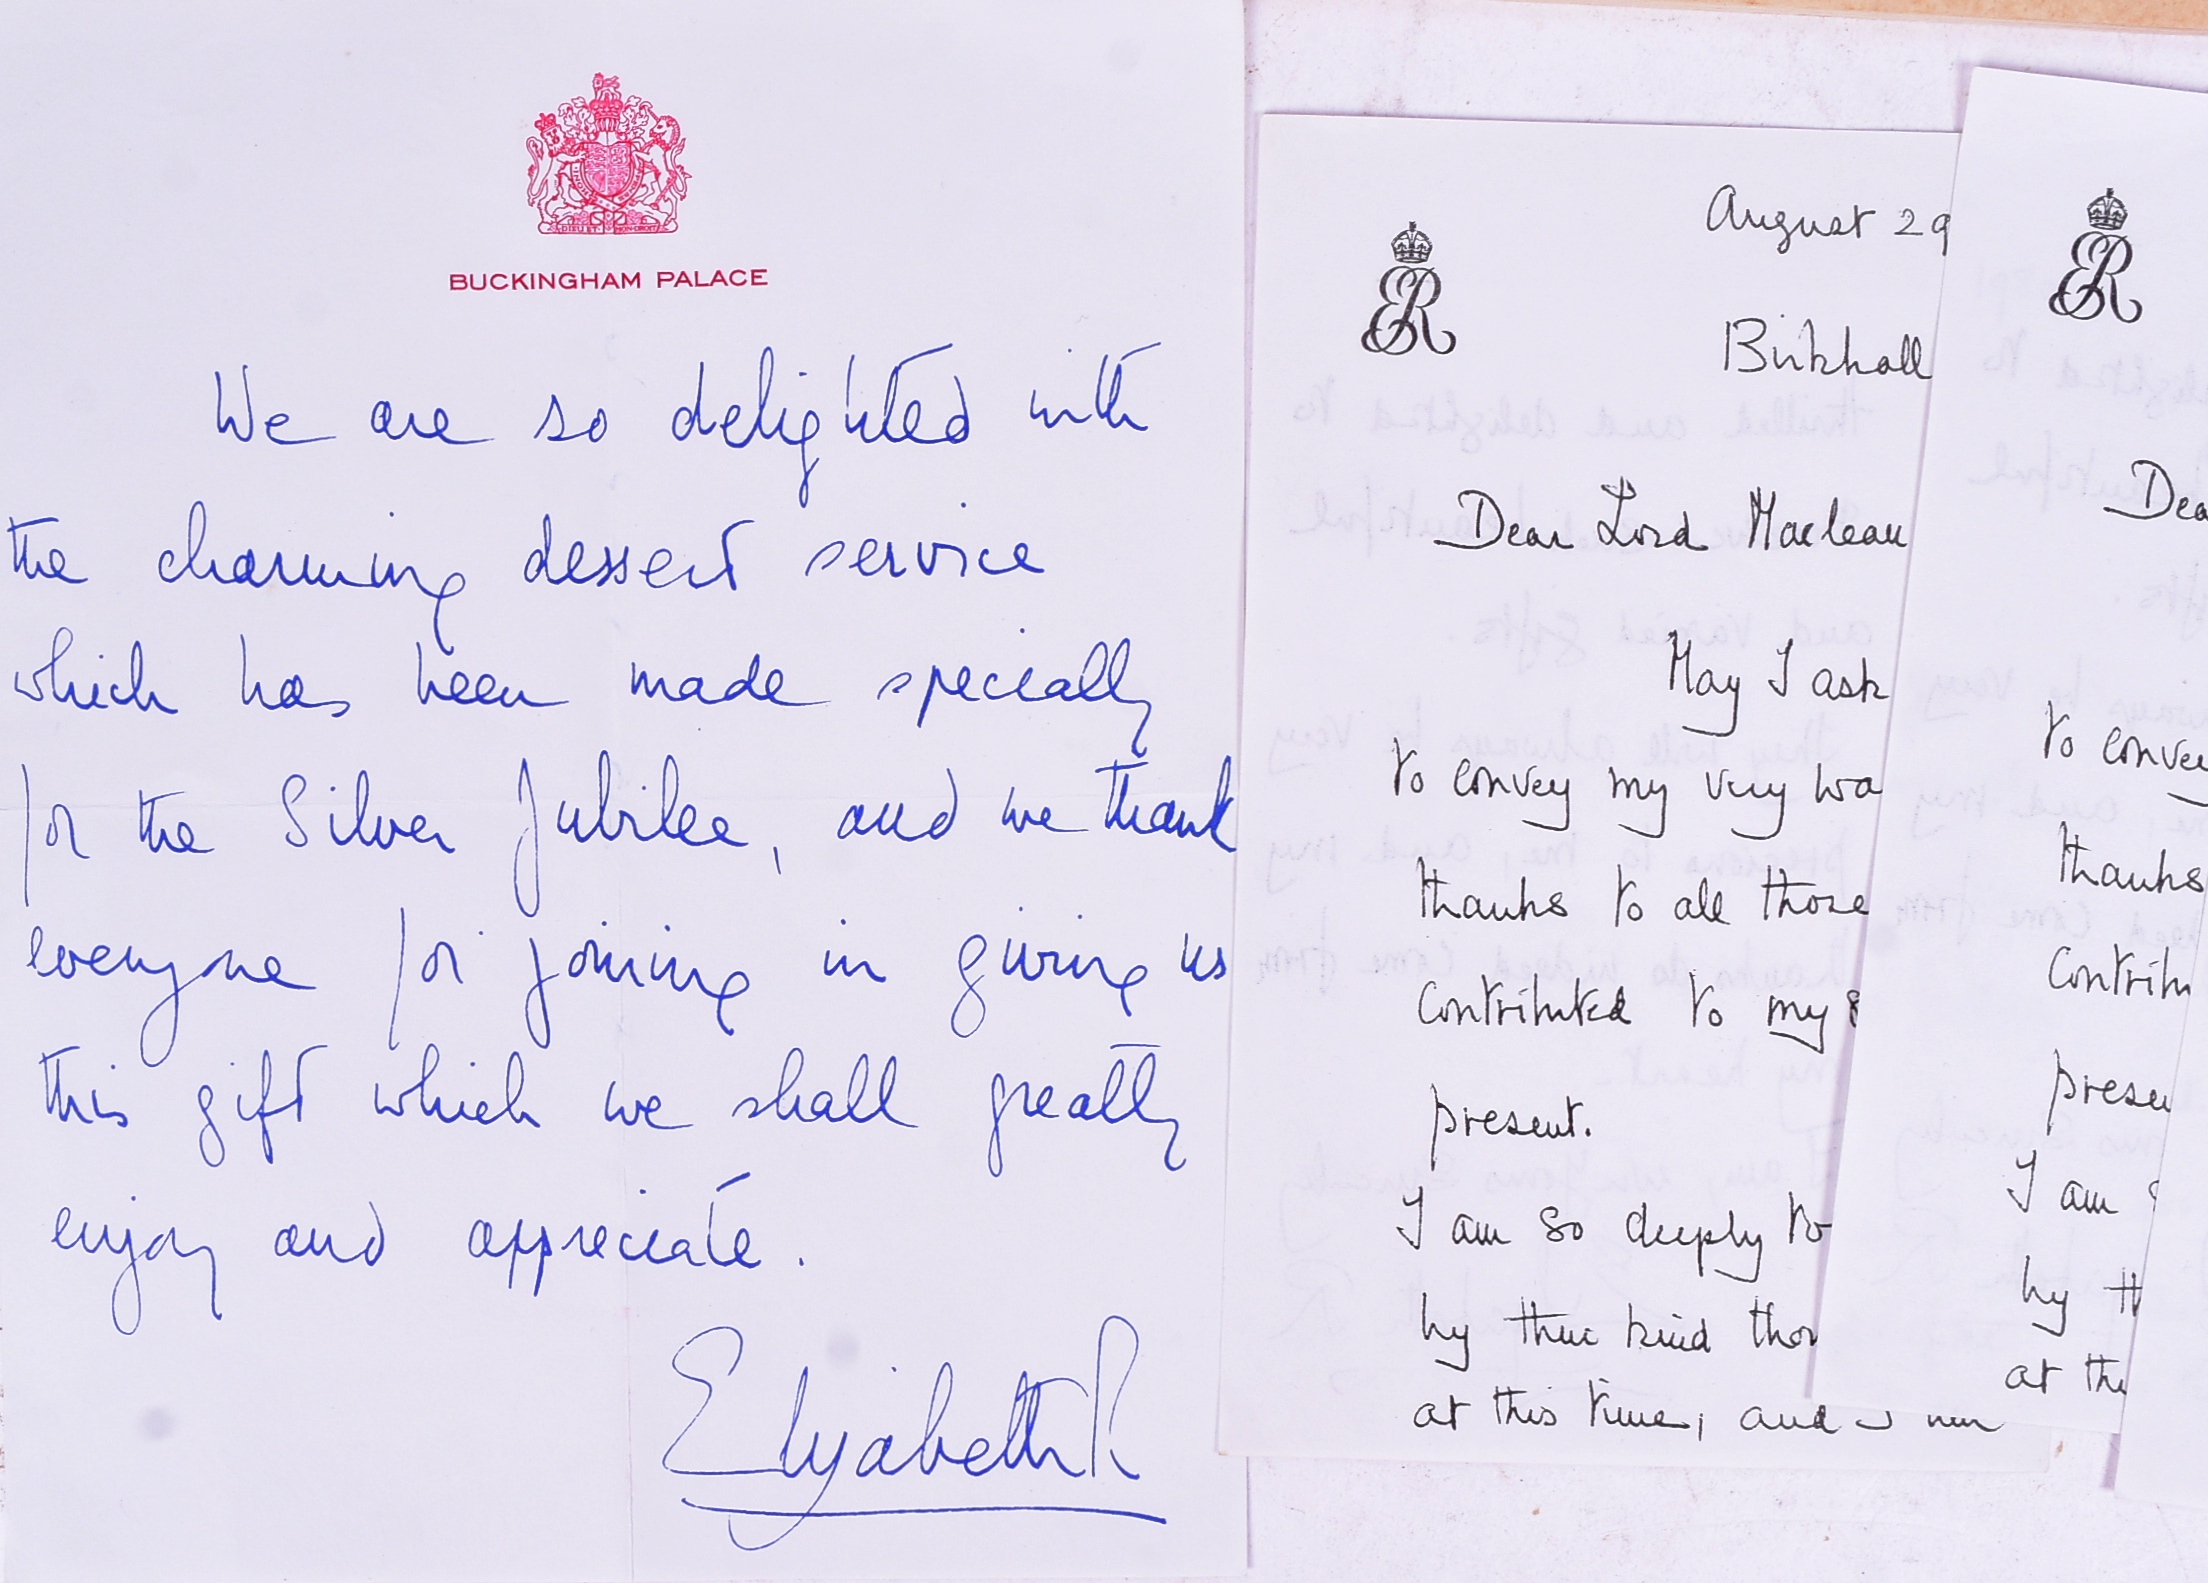 DIEU ET MON DROIT
BUCKINGHAM PALACE
We are so delighted with
the charming dessert service
which has been made specially
for the Silver Jubilee, and we thank
everyone for joining in giving us
this gift which we shall greatly
enjoy and appreciate.
Elizabeth R
ER
August 29
Birkhall
Dear Lord Maclean
May I ask
to convey my very wa
thanks to all those
contributed to my
present.
I am so deeply to
by this kind thou
at this time, and I
ER
Dea
to convey
thanks
contrib
prese
I am
by th
at the